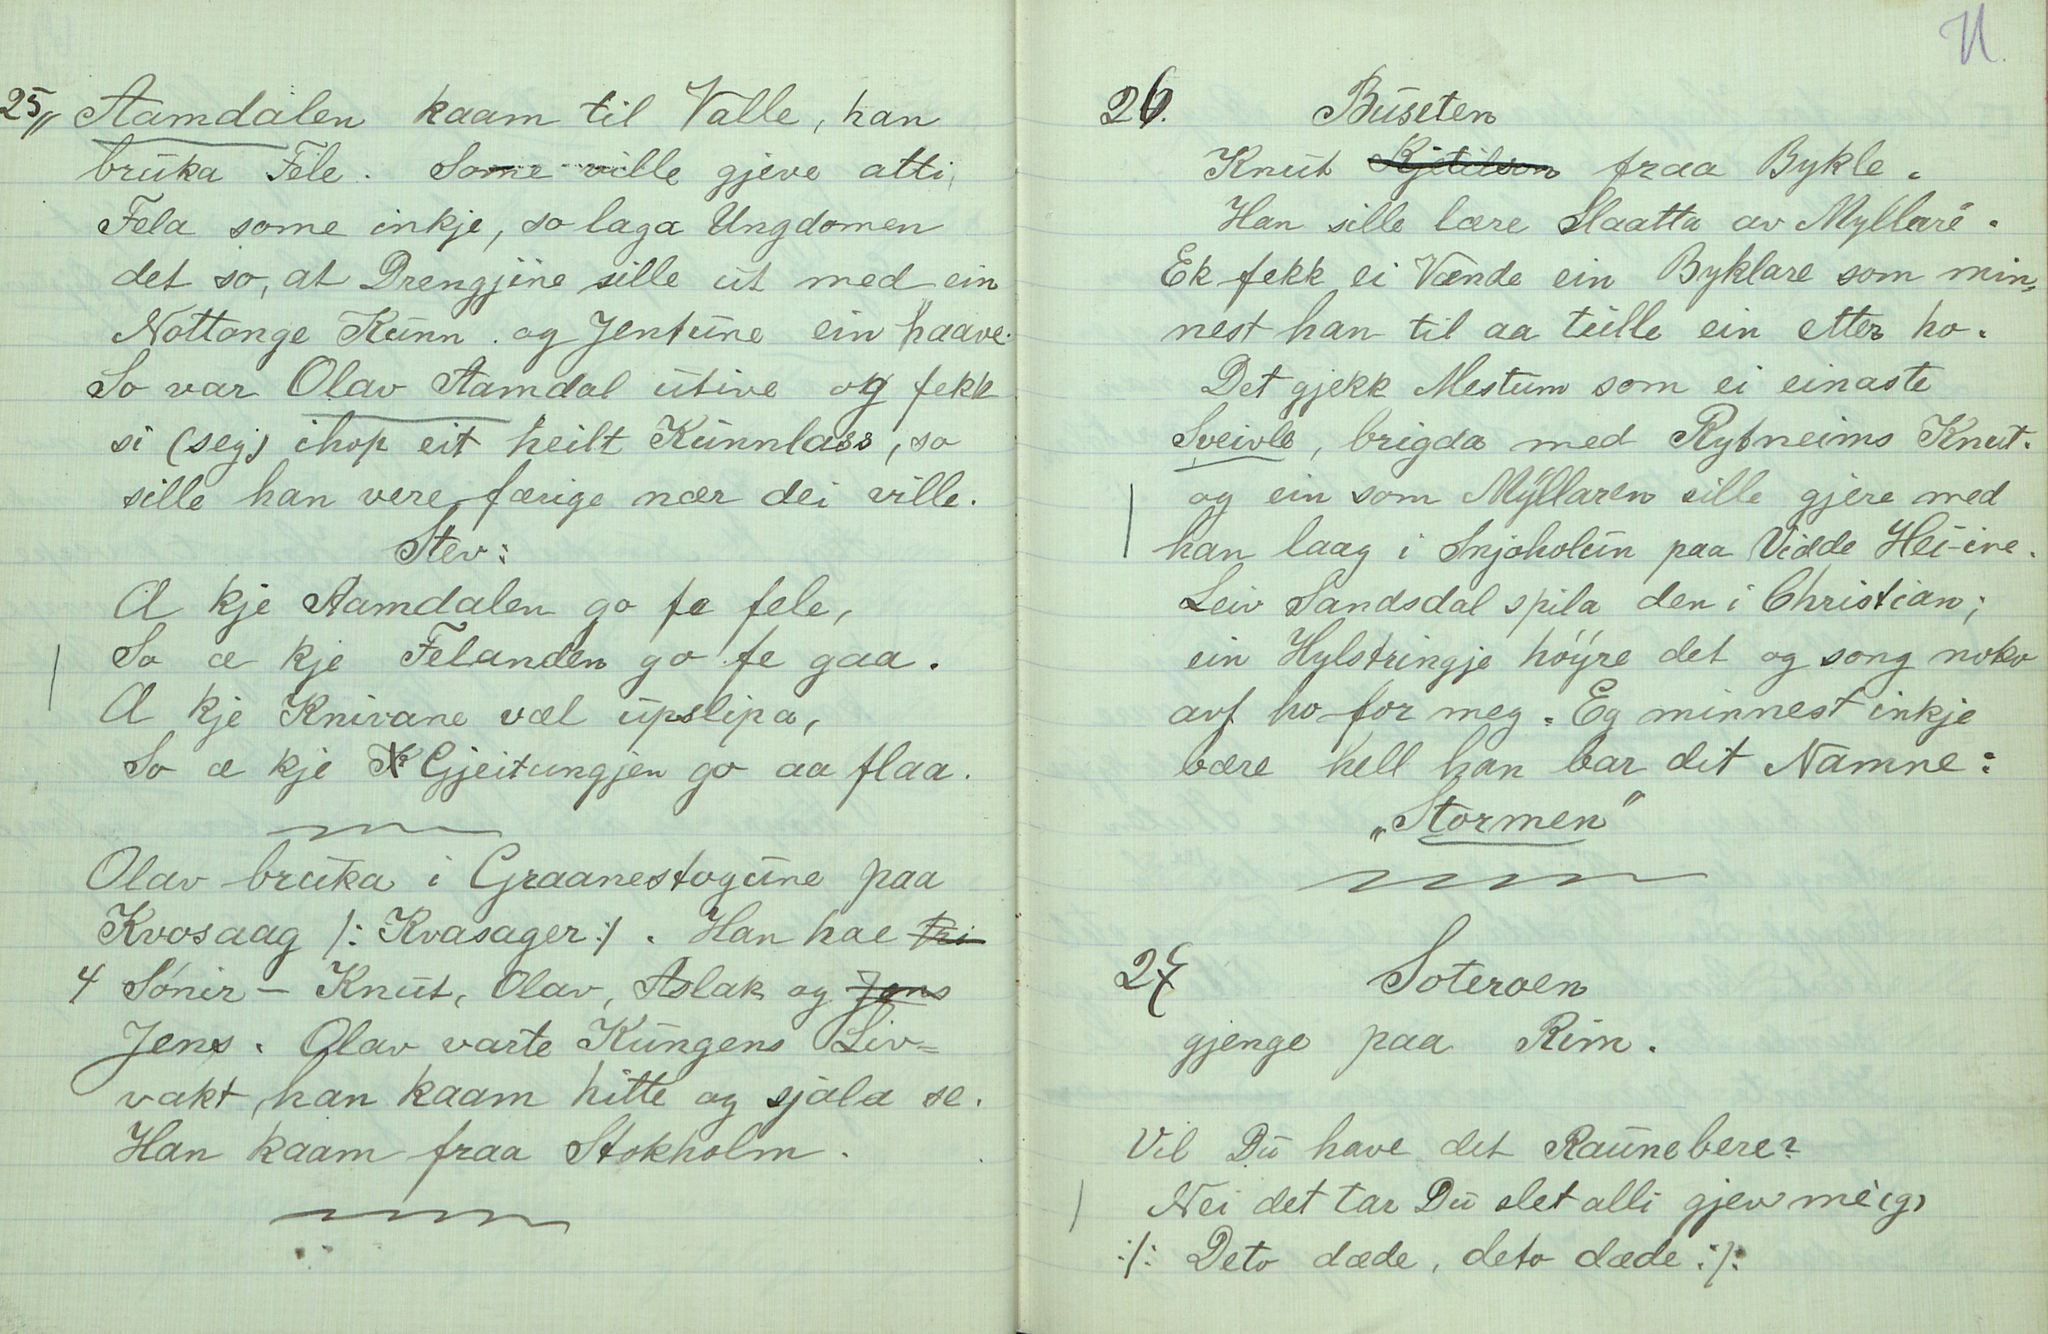 25„ Aamdalen kaam til Valle, han
bruka Fele. Some ville gjeve atti
Fela some inkje, so laga Ungdomen
det so, at Drengjine sille ut med ein
Nottange Kunn og Jentune ein haave.
So var Olav Aamdal utive og fekk
si (seg) ihop eit heilt Kunnlass, so
sille han vere færige nær dei ville.
Stev:
Æ kje Aamdalen go fe fele,
So æ kje Felanden go fe gaa.
Æ kje Knivane væl upslipa,
So æ kje Gjeitungjen go aa flaa.
Olav bruka i Graanestogune paa
Kvosaag /: Kvasager :/. Han hae tri
4 Sónir – Knut, Olav, Aslak og Jons
Jens. Olav varte Kungens Liv=
vakt, han kaam hitte og sjala se.
Han kaam fraa Stokholm.
11.
26. Buseten
Knut Kjetilson fraa Bykle.
Han sille lære Slaatta av Myllare.
Ek fekk ei Vænde ein Byklare som min,
nest han til aa tulle ein etter ho.
Det gjekk Mestum som ei einaste
Sveivle, brigda med Rysneims Knut.
og ein som Myllaren sille gjere med
han laag i Snjoholun paa Vidde Hei-ine.
Leiv Sandsdal spila den i Christian;
ein Hylstringje hóyre det og song noko
avf ho for meg. Eg minnest inkje
bære hell han bar dit Namne:
„Stormen"
27 Soteroen
gjenge paa Rim.
Vil Du have det Raunebere?
Nei det tar Du slet alli gjev me(g)
:/: Deto dæde, deto dæde :/: